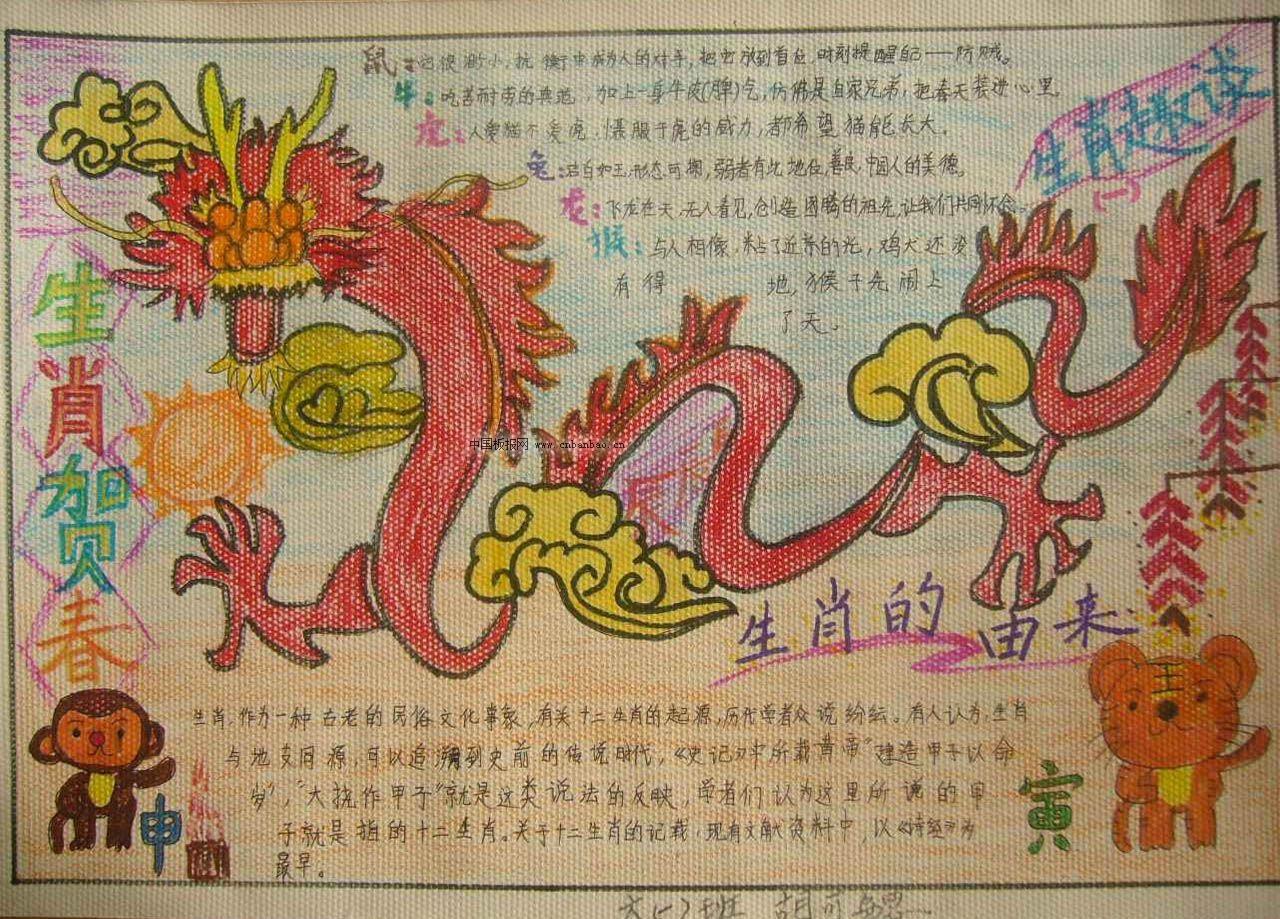 鼠：它很渺小，抗衡中成为人的对手，把它放到首位，时刻提醒自己——防贼。
牛：吃苦耐劳的典范，加上一身牛皮(脾)气，仿佛是自家兄弟，把春天装进心里。
虎：人爱猫不爱虎，慑服于虎的威力，都希望猫能长大。
兔：洁白如玉，形态可掬，弱者有此地位，善良，中国人的美德。
龙：飞龙在天，无人看见，创造图腾的祖先，让我们共同怀念。
猴：与人相像，粘了近亲的光，鸡犬还没
有得 地，猴子先闹上
了天。
生肖趣谈
(一)
生肖贺春
中国板报网 www.cnbanbao.cn
生肖的由来
生肖，作为一种古老的民俗文化事象，有关十二生肖的起源，历代学者众说纷纭。有人认为，生肖
与地支同源，可以追溯到史前的传说时代，《史记》中所载黄帝"建造甲子以命
岁"，"大挠作甲子"就是这类说法的反映，学者们认为这里所说的甲
子就是指的十二生肖。关于十二生肖的记载，现有文献资料中，以《诗经》为
最早。
申
寅
六(一)班